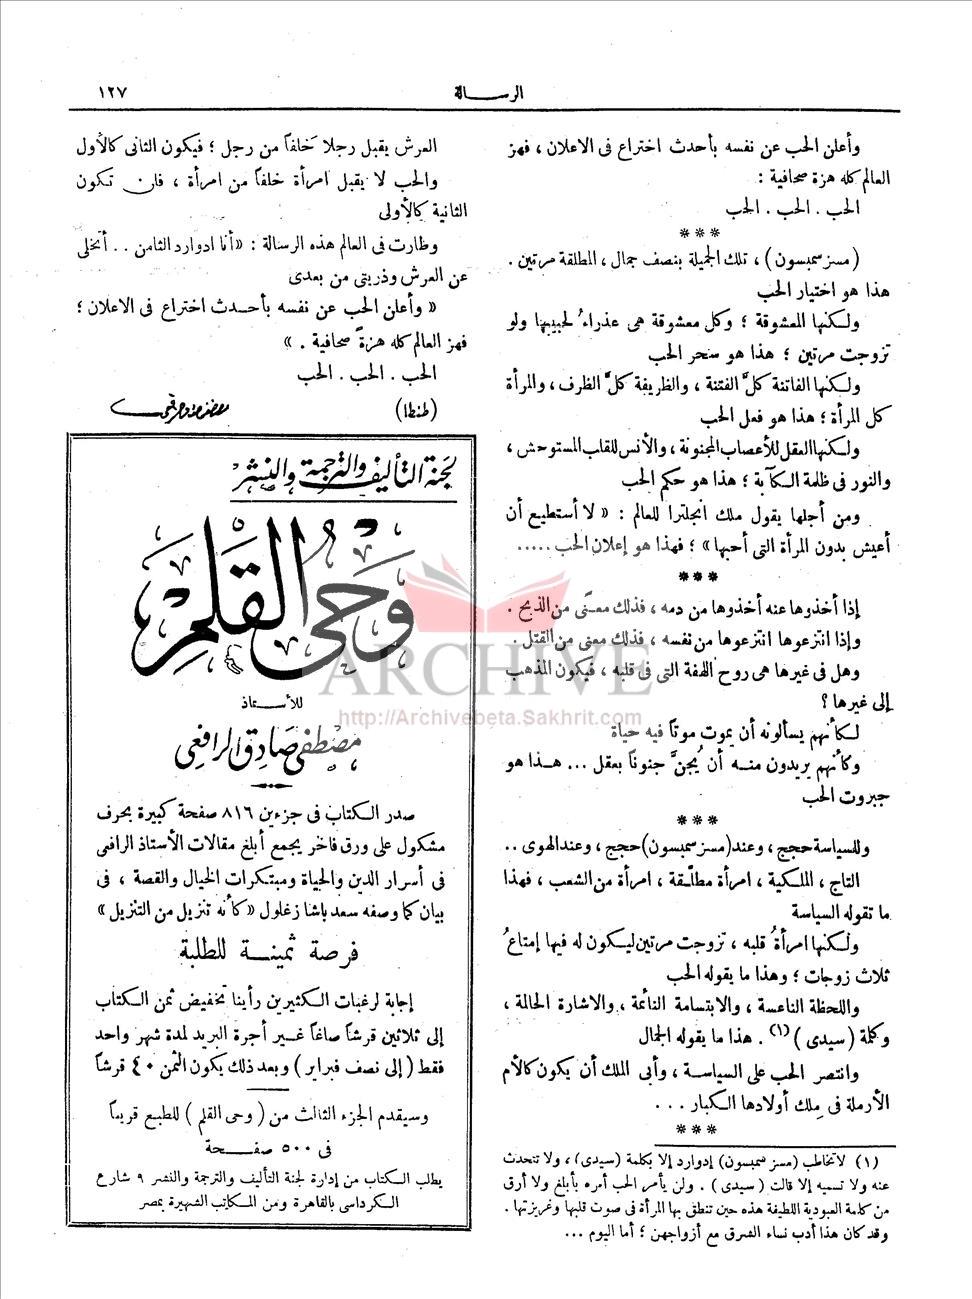 الرسالة
١٢٧
وأعلن الحب عن نفسه بأحدث اختراع فى الاعلان ، فهز
العالم كله هزة صحافية :
الحب . الحب . الحب
***
(مسز سمبسون) ، تلك الجميلة بنصف جمال ، المطلقة مرتين .
هذا هو اختيار الحب
ولكنها المعشوقة ؛ وكل معشوقة هى عذراءُ لحبيبها ولو
تزوجت مرتين ؛ هذا هو سحر الحب
ولكنها الفاتنة كلَّ الفتنة ، والظريفة كلَّ الظرف ، والمرأة
كل المرأة ؛ هذا هو فعل الحب
ولكنها العقل للأعصاب المجنونة ، والأنس للقلب المستوحش ،
والنور فى ظلمة الكآبة ؛ هذا هو حكم الحب
ومن أجلها يقول ملك انجلترا للعالم : « لا أستطيع أن
أعيش بدون المرأة التى أحبها » ؛ فهذا هو إعلان الحب .....
***
إذا أخذوها عنه أخذوها من دمه ، فذلك معنًى من الذبح .
وإذا انتزعوها انتزعوها من نفسه ، فذلك معنى من القتل .
وهل فى غيرها هى روح اللهفة التى فى قلبه ، فيكون المذهب
إلى غيرها ؟
لكأنهم يسألونه أن يموت موتاً فيه حياة
وكأنهم يريدون منه أن يُجنَّ جنوناً بعقل ... هذا هو
جبروت الحب
***
وللسياسة حجج ، وعند (مسز سمبسون) حجج ، وعند الهوى ..
التاج ، الملكية ، امرأة مطلَّقة ، امرأة من الشعب ، فهذا
ما تقوله السياسة
ولكنها امرأةُ قلبه ، تزوجت مرتين ليكون له فيها إمتاعُ
ثلاث زوجات ؛ وهذا ما يقوله الحب
واللحظة الناعسة ، والابتسامة النائمة ، والاشارة الحالمة ،
وكلمة (سيدى) (١) . هذا ما يقوله الجمال
وانتصر الحب على السياسة ، وأبى الملك أن يكون كالأم
الأرملة فى ملك أولادها الكبار ...
***
(١) لا تخاطب (مسز سمبسون) إدوارد إلا بكلمة (سيدى) ، ولا تتحدث
عنه ولا تسميه إلا قالت (سيدى) . ولن يأمر الحب أمره بأبلغ ولا أرق
من كلمة العبودية اللطيفة هذه حين تنطق بها المرأة فى صوت قلبها وغريزتها .
وقد كان هذا أدب نساء الشرق مع أزواجهن ؛ أما اليوم ...
العرش يقبل رجلا خَلفاً من رجل ؛ فيكون الثانى كالأول
والحب لا يقبل امرأة خلفاً من امرأة ، فلن تكون
الثانية كالأولى
وطارت فى العالم هذه الرسالة : «أنا ادوارد الثامن .. أتخلى
عن العرش وذريتى من بعدى
« وأعلن الحب عن نفسه بأحدث اختراع فى الاعلان ؛
فهز العالم كله هزةً صحافية . »
الحب . الحب . الحب
(طنطا)
لجنة التأليف والترجمة والنشر
وحى القلم
للأستاذ
مصطفى صادق الرافعى
صدر الكتاب فى جزءين ٨١٦ صفحة كبيرة بحرف
مشكول على ورق فاخر يجمع أبلغ مقالات الأستاذ الرافعى
فى أسرار الدين والحياة ومبتكرات الخيال والقصة ، فى
بيان كما وصفه سعد باشا زغلول «كأنه تنزيل من التنزيل»
فرصة ثمينة للطلبة
إجابة لرغبات الكثيرين رأينا تخفيض ثمن الكتاب
إلى ثلاثين قرشاً صاغاً غير أجرة البريد لمدة شهر واحد
فقط (إلى نصف فبراير) وبعد ذلك يكون الثمن ٤٠ قرشاً
وسيقدم الجزء الثالث من (وحى القلم) للطبع قريباً
فى ٥٠٠ صفحة
يطلب الكتاب من إدارة لجنة التأليف والترجمة والنشر ٩ شارع
الكرداسى بالقاهرة ومن المكاتب الشهيرة بمصر
ARCHIVE
http://Archivebeta.Sakhrit.com